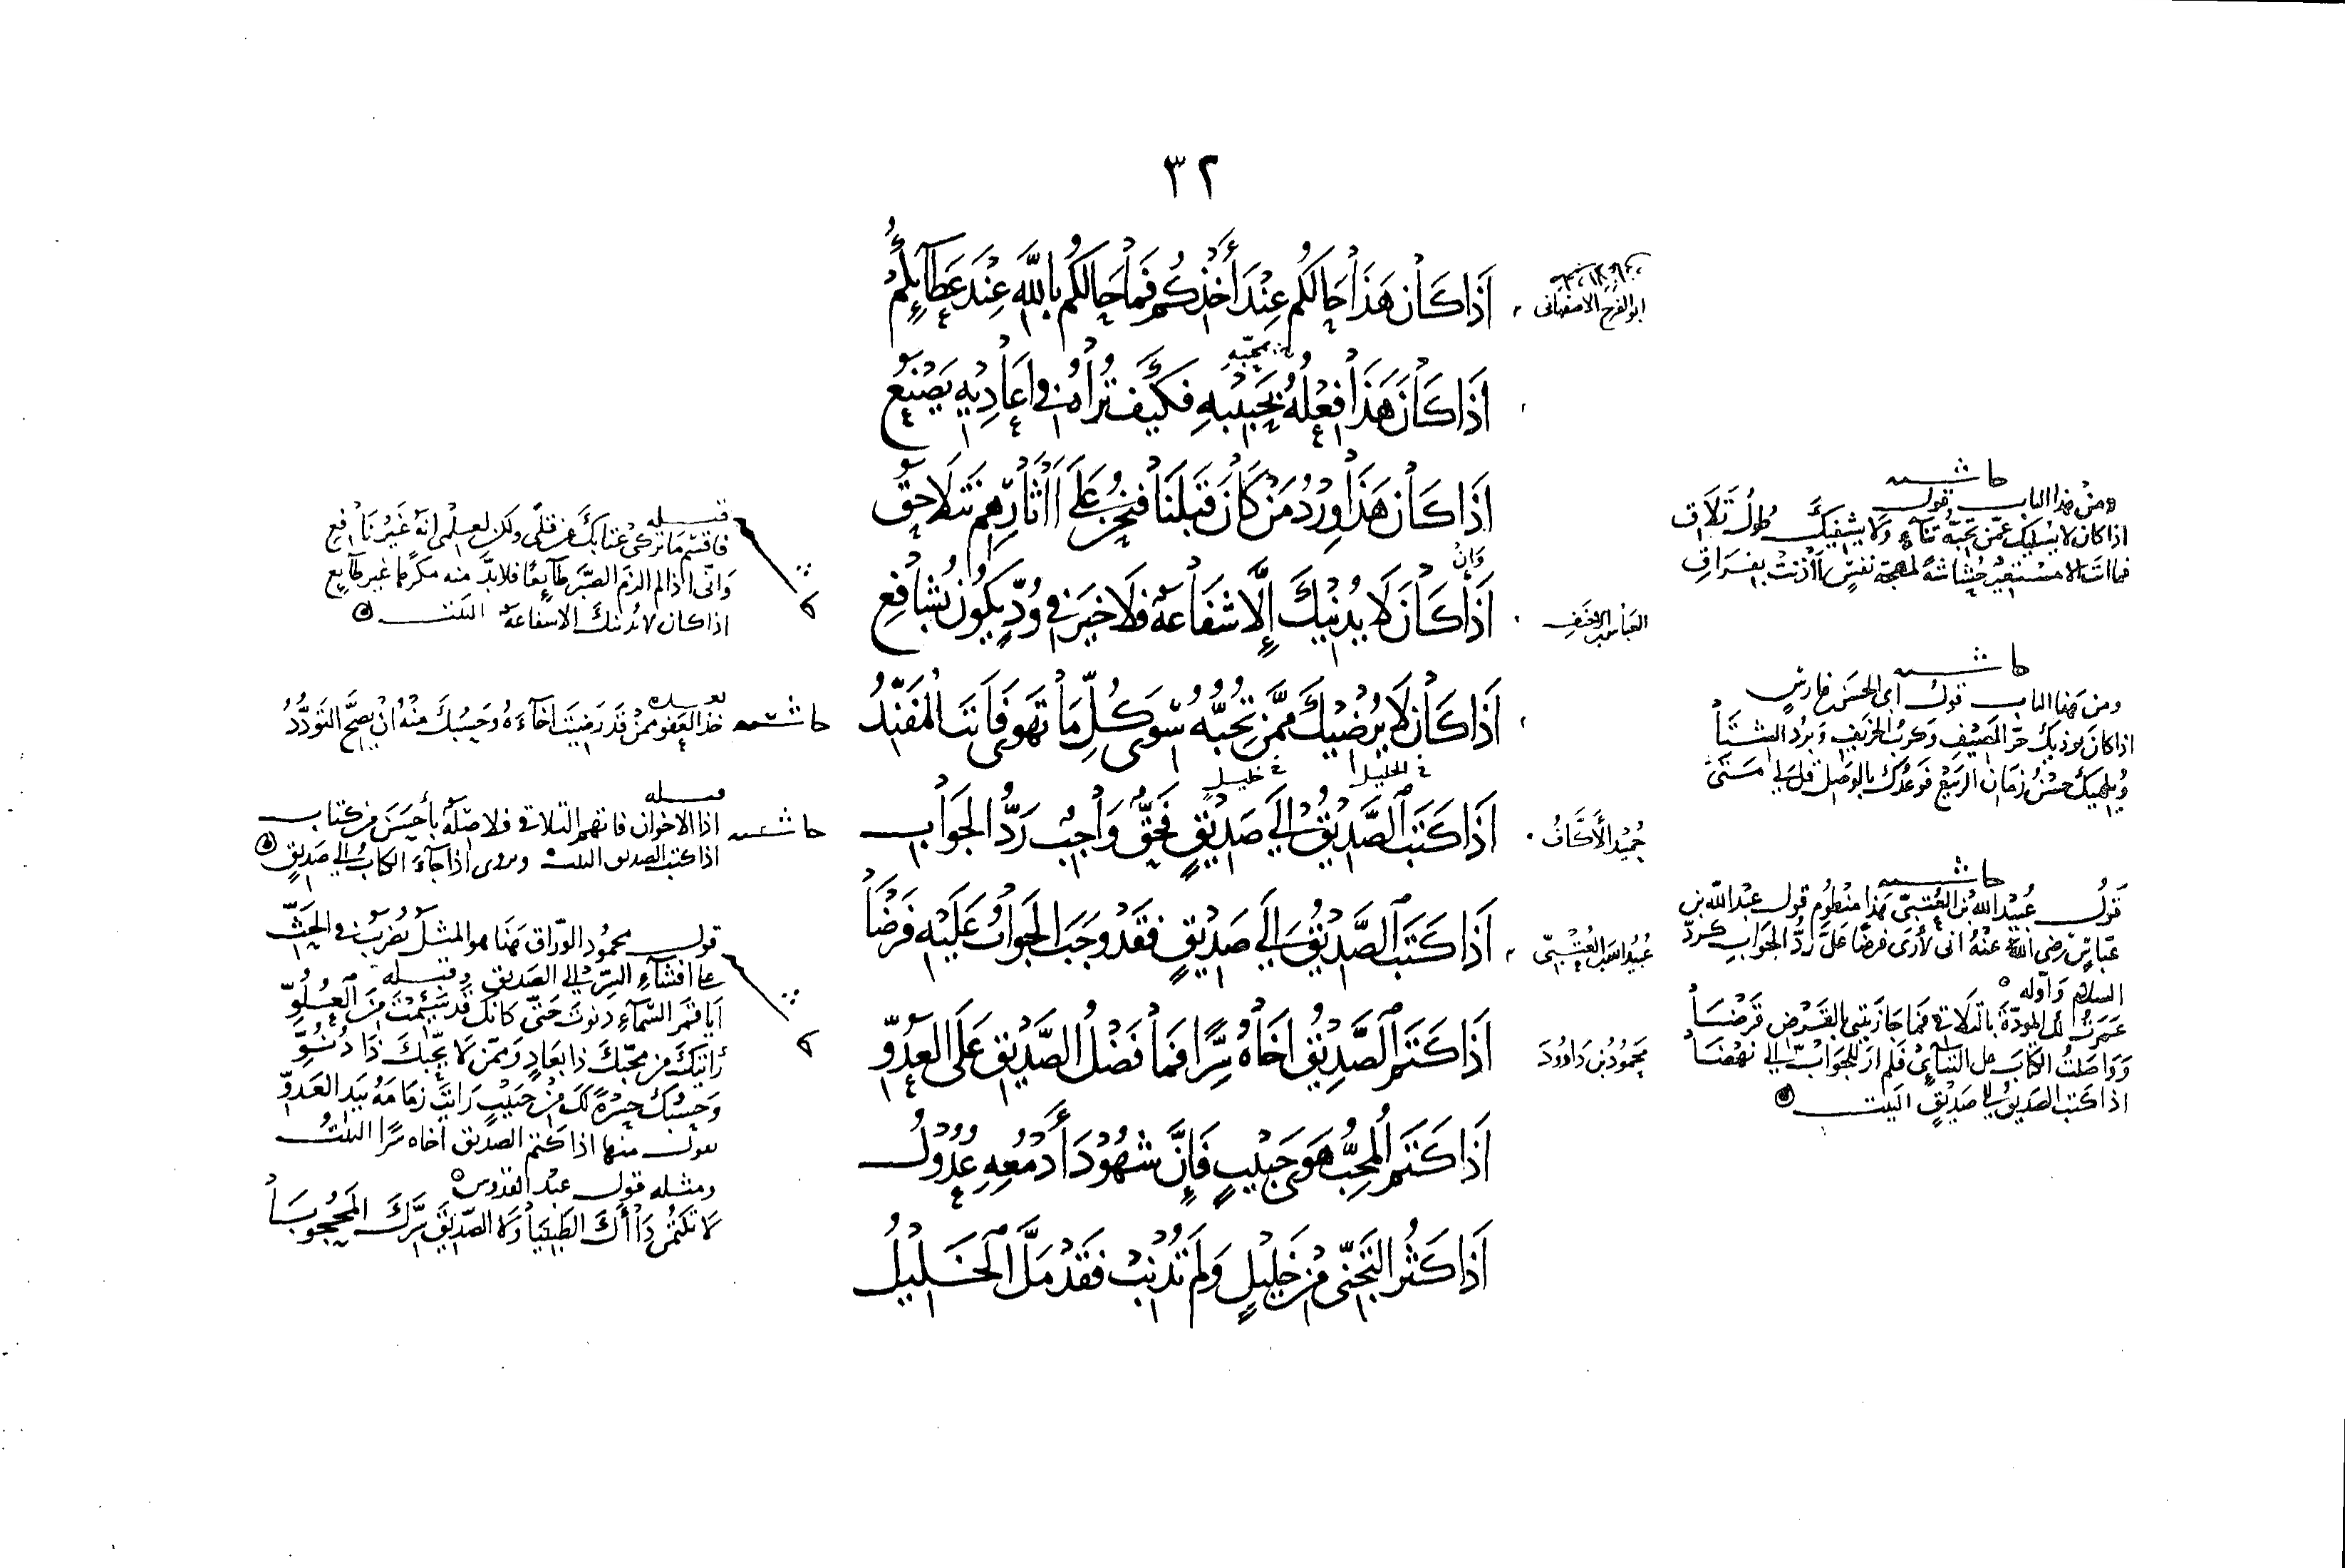 ٣٢
اذا كان هذا حالكم عند أخذكم فما حالكم بالله عند عطائكم
ابو الفرج الاصفهاني
اذا كان هذا فعله بحبيبه فكيف تراه في اعاديه يصنع
بمحبه
اذا كان هذا ورد من كان قبلنا فنحن على اثارهم نتلاحق
وان
اذا كان لا يدنيك إلا شفاعة فلا خير في ود يكون بشافع
العباس بن الاحنف
اذا كان لا يرضيك ممن تحبه سوى كل ما تهوى فانت المفند
اذا كتب الصديق إلى صديق فحق واجب رد الجواب
خ الخليل خ خليل
حميد الأكاف
اذا كتب الصديق إلى صديق فقد وجب الجواب عليه فرضا
عبيد الله بن العتبي
اذا كتم الصديق اخاه سرا فما فضل الصديق على العدو
محمود بن داوود
اذا كتم المحب هوى حبيب فإن شهود أدمعه عدول
اذا كثر التجني من خليل ولم تذنب فقد مل الخليل
حاشية
ومن هذا الباب قول
اذا كان لا يسليك عمن تحبه تناء ولا يشفيك طول تلاق
فما انت الا مستعير حشاشة لمهجة نفس آذنت بفراق
حاشية
ومن هذا الباب قول ابي الحسن بن فارس
اذا كان يوذيك حر المصيف وكرب الخريف وبرد الشتا
ويلهيك حسن زمان الربيع فوعدك بالوصل قل لي متى
حاشية
قول عبيد الله بن العتبي هذا منظوم قول عبد الله بن
عباس رضي الله عنه اني لأرى فرضا علي رد الجواب كرد
السلام واوله
عمرت لك المودة بالتلاقي فما جازيتني بالقرض قرضا
وواصلت الكتاب على التنائي فلم ار للجواب إلي نهضا
اذا كتب الصديق إلى صديق البيت
قبله
فاقسم ما تركي عتابك عن قلى ولكن لعلمي انه غير نافع
واني اذا لم الزم الصبر طائعا فلا بد منه مكرها غير طائع
اذا كان لا يدنيك الا شفاعة البيت
بعده
حاشية خذ العفو ممن قد رضيت اخاءه وحسبك منه ان يصح التودد
قبله
حاشية اذا الاخوان فاتهم التلاقي فلا صلة بأحسن من كتاب
اذا كتب الصديق البيت ويروى اذا جاء الكتاب إلى صديق
قول محمود الوراق هذا هو المثل يضرب في الحث
على افشاء السر إلى الصديق وقبله
أيا قمر السماء دنوت حتى كانك قد سئمت من العلو
رأيتك من محبك ذا بعاد وممن لا يحبك ذا دنو
وحسبك حسرة لك من حبيب رايت زمامه بيد العدو
يقول منها اذا كتم الصديق اخاه سرا البيت
ومثله قول عبد القدوس
لا تكتمن داءك الطبيبا ولا الصديق سرك المحجوبا